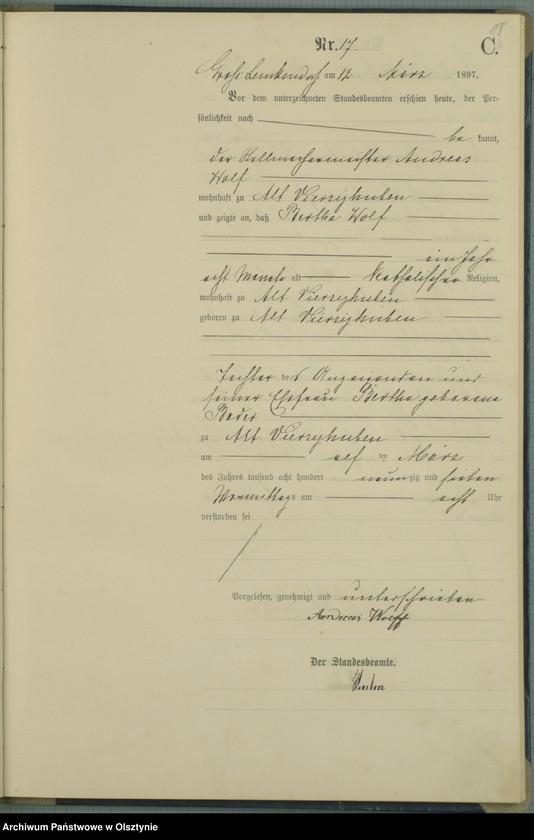 98
Nr. 17. C.
Groß Lemkendorf am 12 März 1897.
Vor dem unterzeichneten Standesbeamten erschien heute, der Per-
sönlichkeit nach
be kannt,
der Andreas
Wolf
wohnhaft zu Alt Vierzighuben
und zeigte an, daß Bertha Wolf
ein Jahr
acht Monate alt katholischer Religion,
wohnhaft zu Alt Vierzighuben
geboren zu Alt Vierzighuben
Tochter des Anzeigenden und
seiner Ehefrau Bertha geborene
zu Alt Vierzighuben
am elf ten März
des Jahres tausend acht hundert neunzig und sieben
Vormittags um acht Uhr
verstorben sei
Vorgelesen, genehmigt und unterschrieben
Andreas Wolff
Der Standesbeamte.
Archiwum Państwowe w Olsztynie